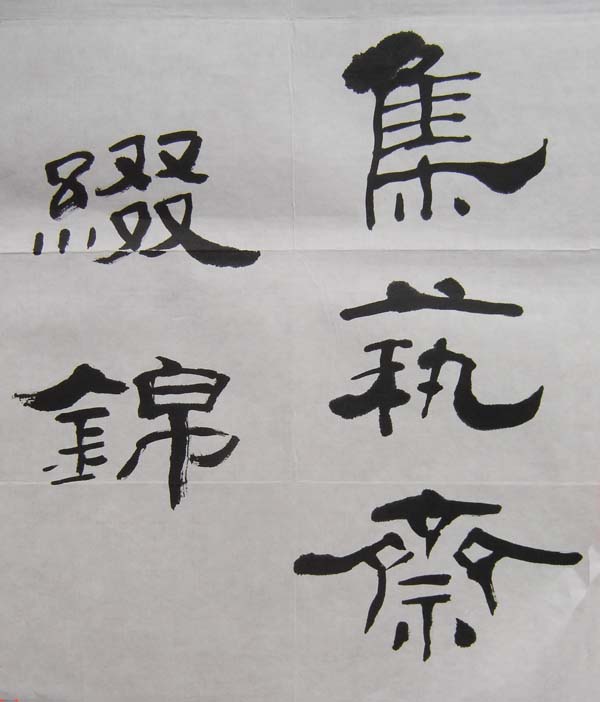 集蓺齋
綴錦